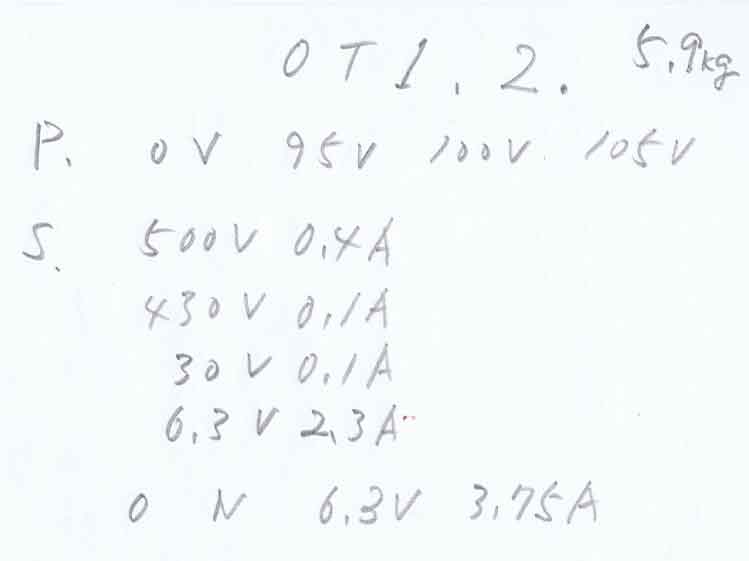 OT1.2. 5.9kg
P. 0V 95V 100V 105V
S. 500V 0.4A
430V 0.1A
30V 0.1A
6.3V 2.3A
0 N 6.3V 3.75A